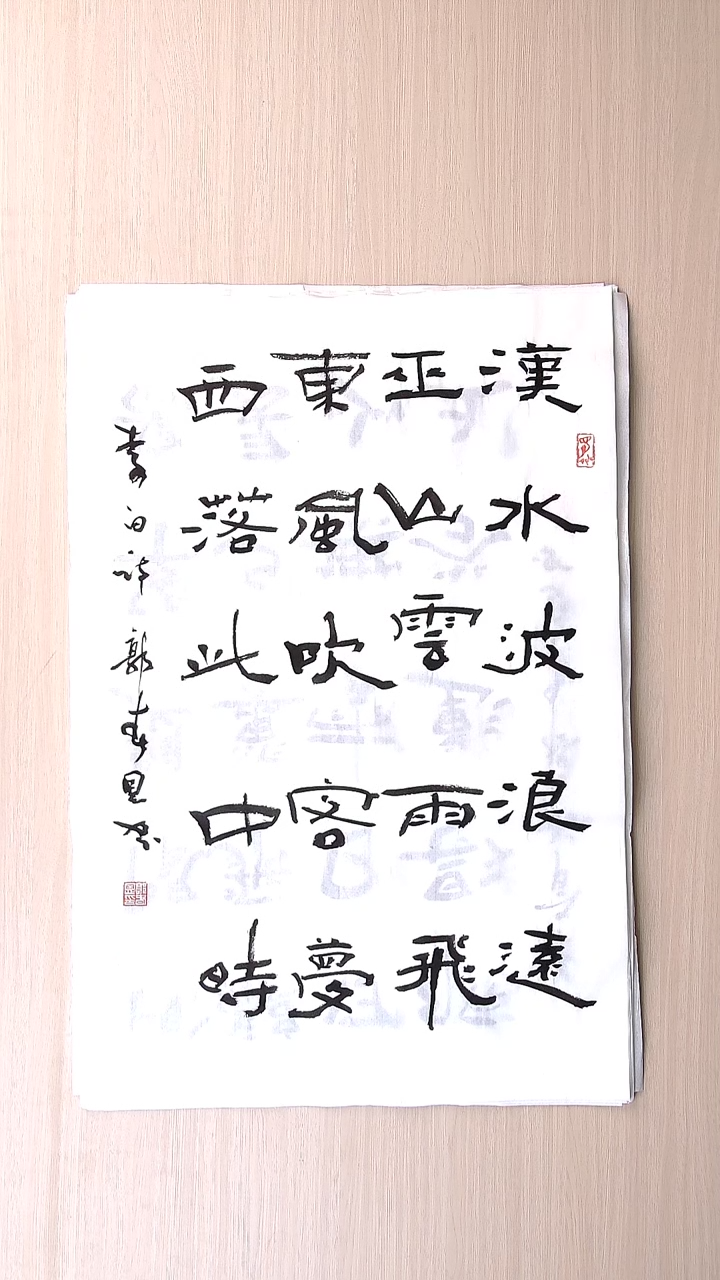 漢水波浪遠
巫山雲雨飛
東風吹客夢
西落此中時
李白詩 郭春